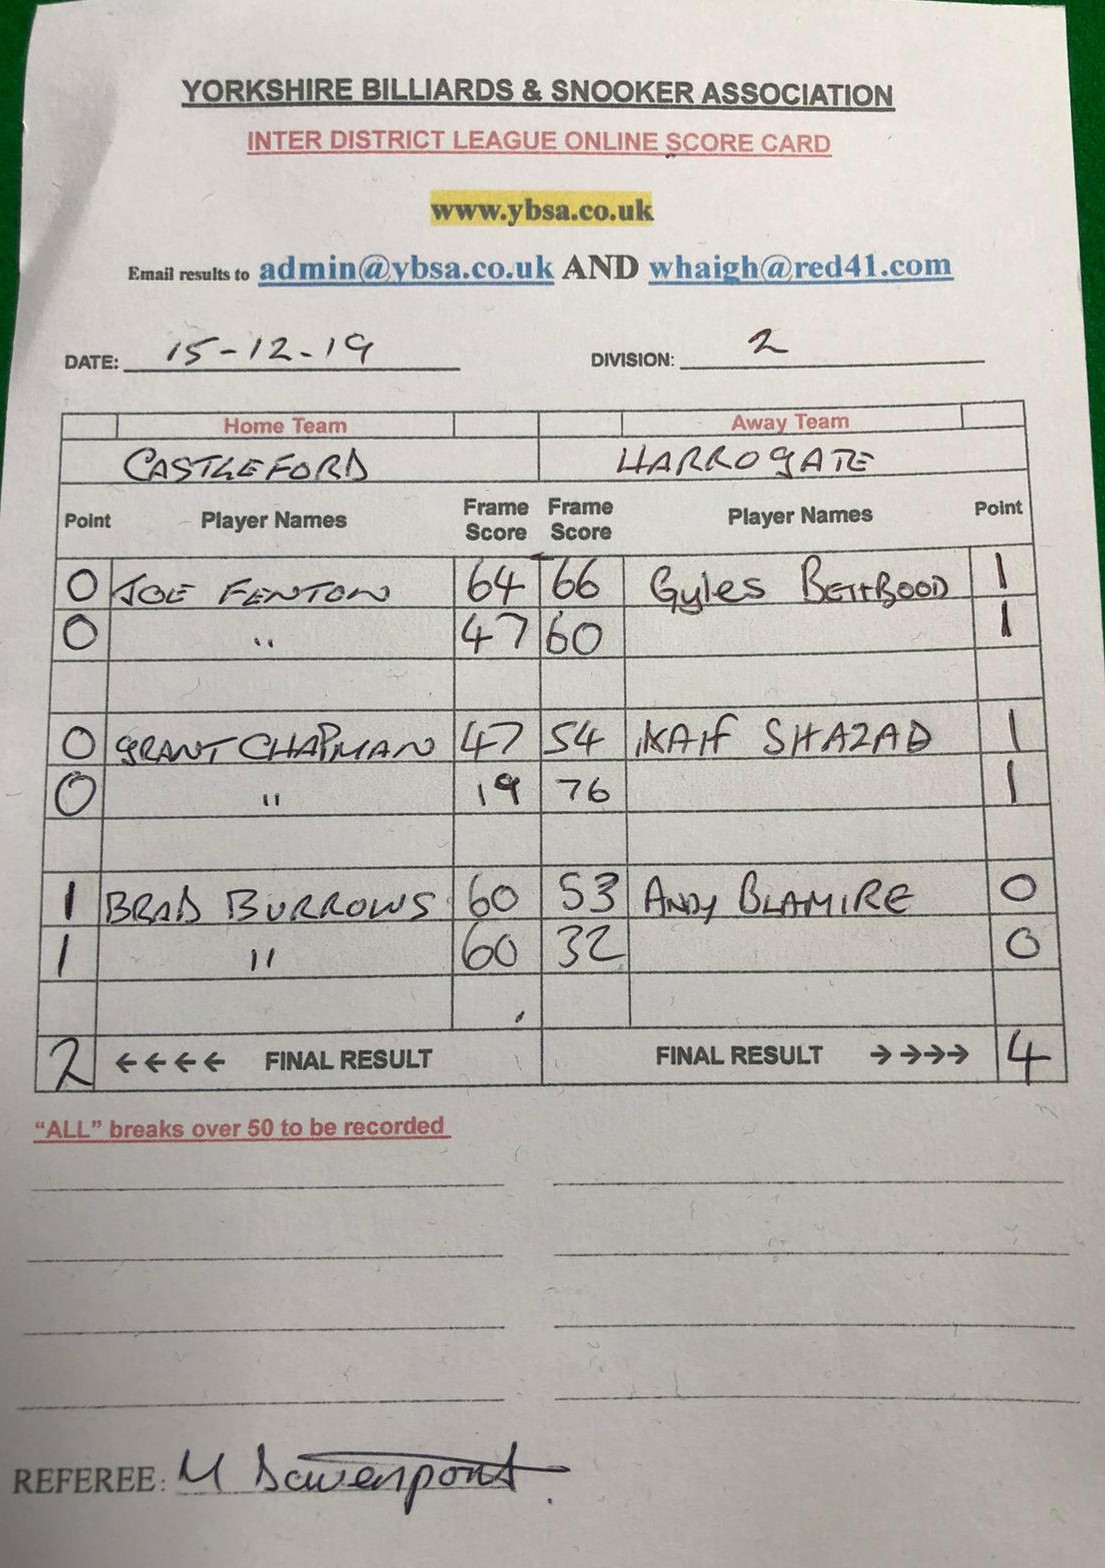 YORKSHIRE BILLIARDS & SNOOKER ASSOCIATION
INTER DISTRICT LEAGUE ONLINE SCORE CARD
www.ybsa.co.uk
Email results to admin@ybsa.co.uk AND whaigh@red41.com
DATE: 15-12-19 DIVISION: 2
Home Team Away Team
CASTLEFORD HARROGATE
Point Player Names Frame Score Frame Score Player Names Point
0 JOE FENTON 64 66 Gyles 1
0 " 47 60 1
0 GRANT CHAPMAN 47 54 KAIF SHAZAD 1
0 " 19 76 1
1 BRAD BURROWS 60 53 ANDY BLAMIRE 0
1 " 60 32 0
2 ←←←← FINAL RESULT FINAL RESULT →→→→ 4
“ALL” breaks over 50 to be recorded
REFEREE: M Davenport.